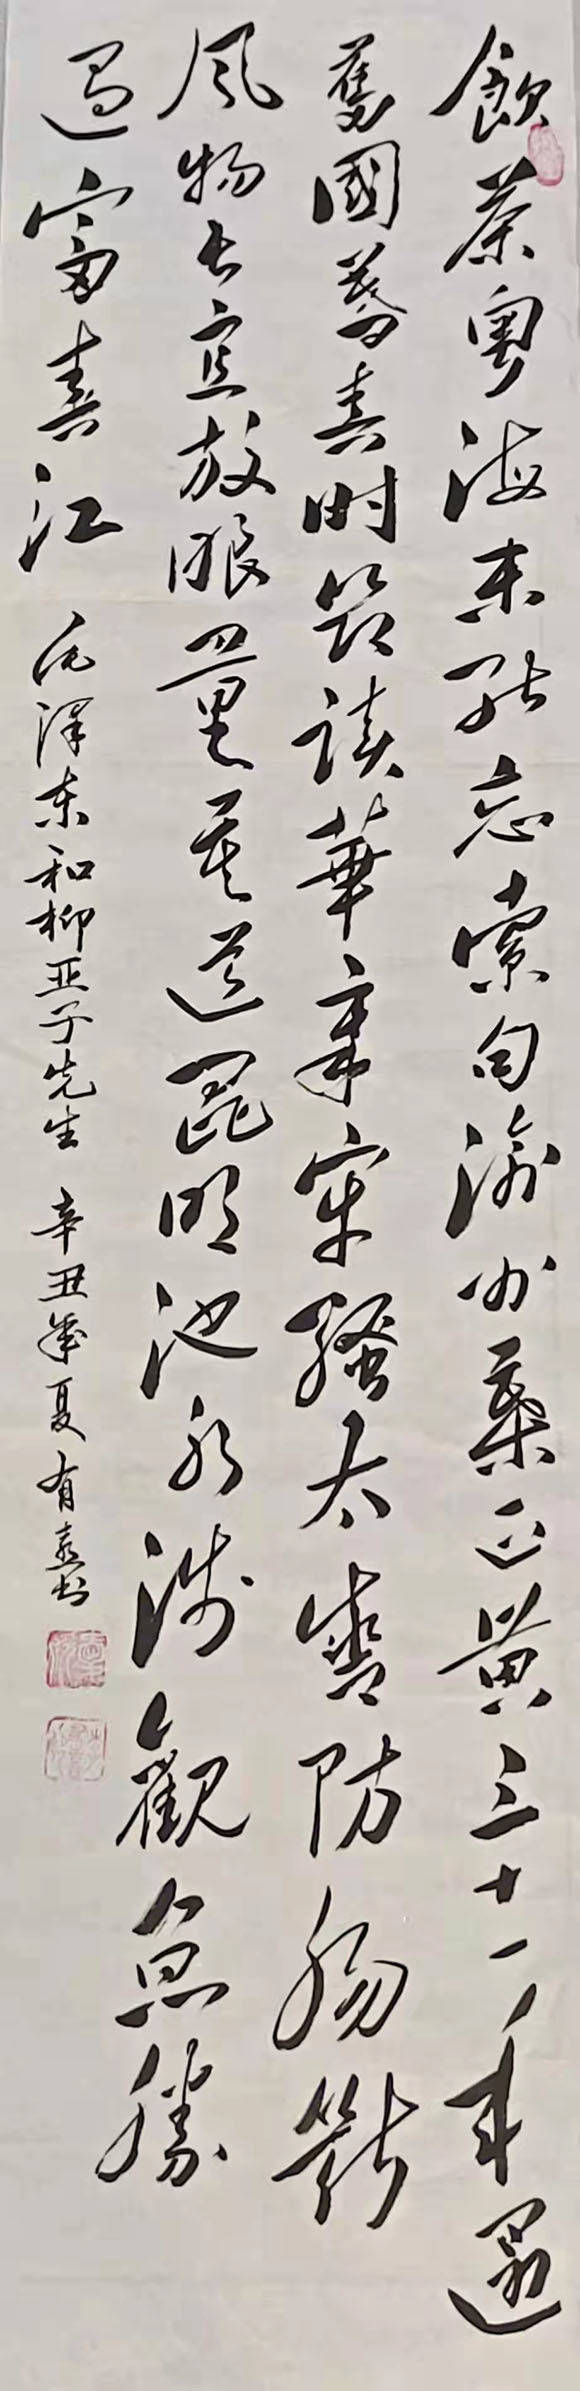 飲茶粵海未能忘索句渝州葉正黃三十一年還
舊國暮春時節讀華章牢騷太盛防腸斷
風物長宜放眼量莫道昆明池水淺觀魚勝
過富春江
毛澤東和柳亞子先生 辛丑年夏 有 書